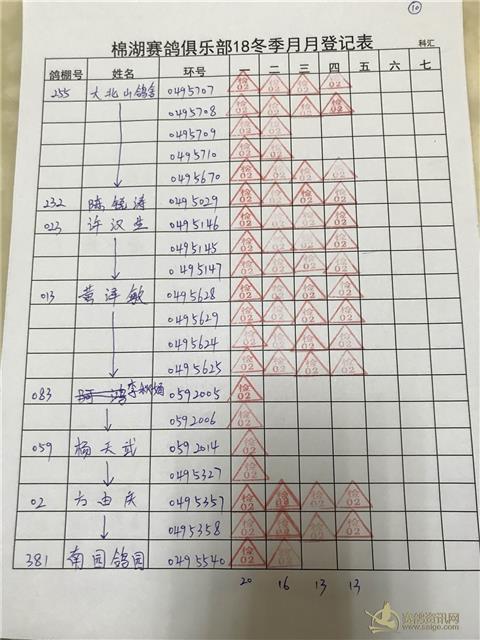 10
棉湖赛鸽俱乐部18冬季月月登记表 科汇
鸽棚号 姓名 环号 一 二 三 四 五 六 七
255 大北山鸽舍 0495707 检02 检02 检02 检02
0495708 检02 检02 检02 检02
0495709 检02 检02
0495710 检02 检02
0495670 检02 检02 检02 检02
232 陈锐涛 0495029 检02 检02 检02 检02
023 许汉生 0495146 检02 检02 检02 检02
0495145 检02 检02 检02 检02
0495147 检02 检02 检02 检02
013 黄泽敏 0495628 检02 检02 检02 检02
0495629 检02 检02 检02 检02
0495624 检02 检02 检02 检02
0495625 检02 检02 检02 检02
083 0592005 检02
0592006 检02
059 杨天武 0592014 检02
0495327 检02
02 方由庆 0495357 检02 检02 检02 检02
0495358 检02 检02 检02 检02
381 南园鸽园 0495540 检02 检02
20 16 13 13
赛鸽资讯网
www.saige.com